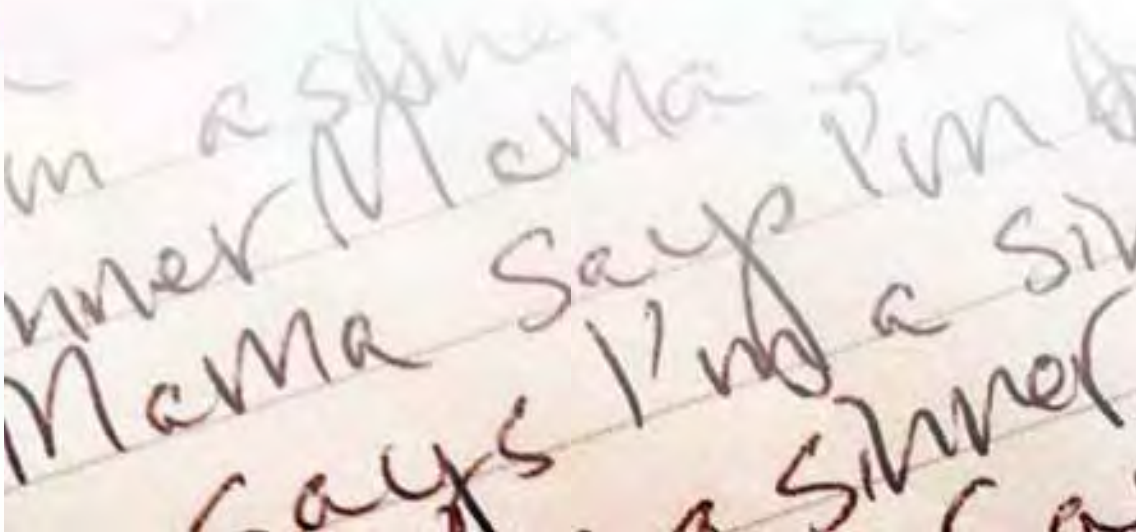 m a sinner
nner Mama sa
Mama Says I'm
Says I'm a sin
a sinner
Sa